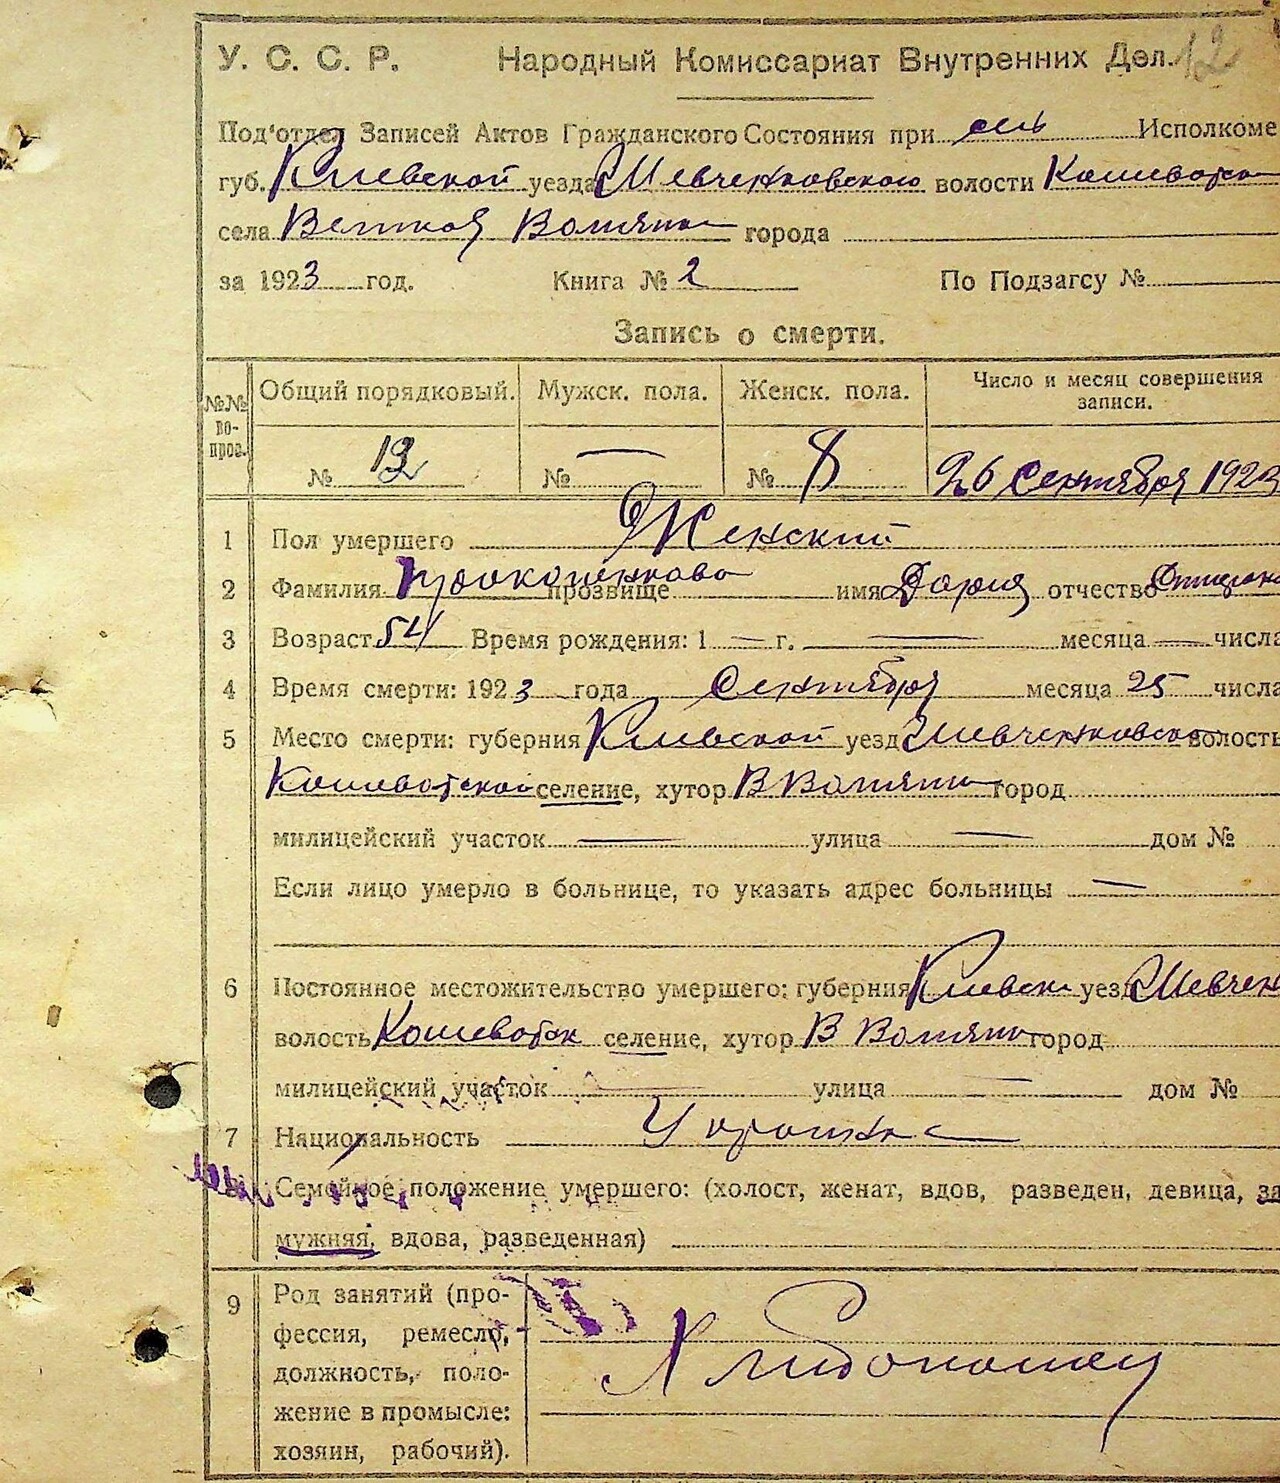 У. С. С. Р. Народный Комиссариат Внутренних Дел. 12
Под'отдел Записей Актов Гражданского Состояния при сель Исполкоме
губ. Киевской уезда Шевченковского волости
села Великой города
за 1923 год. Книга № 2 По Подзагсу №
Запись о смерти.
№№ во-прос. Общий порядковый. Мужск. пола. Женск. пола. Число и месяц совершения записи.
№ 12 № — № 8 26 Сентября 1923
1 Пол умершего Женский
2 Фамилия прозвище имя Дария отчество
3 Возраст 54 Время рождения: 1 — г. — месяца — числа
4 Время смерти: 1923 года Сентября месяца 25 числа
5 Место смерти: губерния Киевской уезд Шевченковского волость
селение, хутор В город
милицейский участок — улица — дом №
Если лицо умерло в больнице, то указать адрес больницы —
6 Постоянное местожительство умершего: губерния Киевск уезд Шевчен
волость селение, хутор В город
милицейский участок — улица — дом №
7 Национальность
Семейное положение умершего: (холост, женат, вдов, разведен, девица, за
мужняя, вдова, разведенная)
9 Род занятий (про-
фессия, ремесло,
должность, поло-
жение в промысле:
хозяин, рабочий).
Хлибопашец